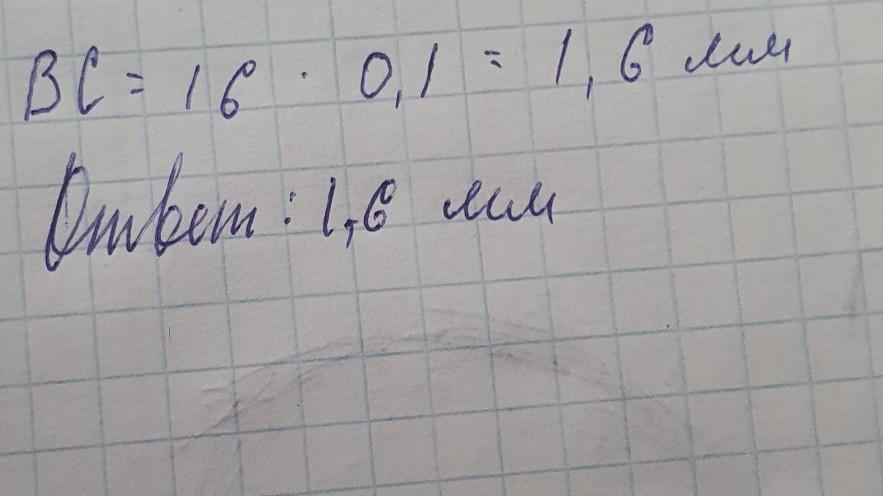 BC = 16 · 0,1 = 1,6 мм
Ответ: 1,6 мм